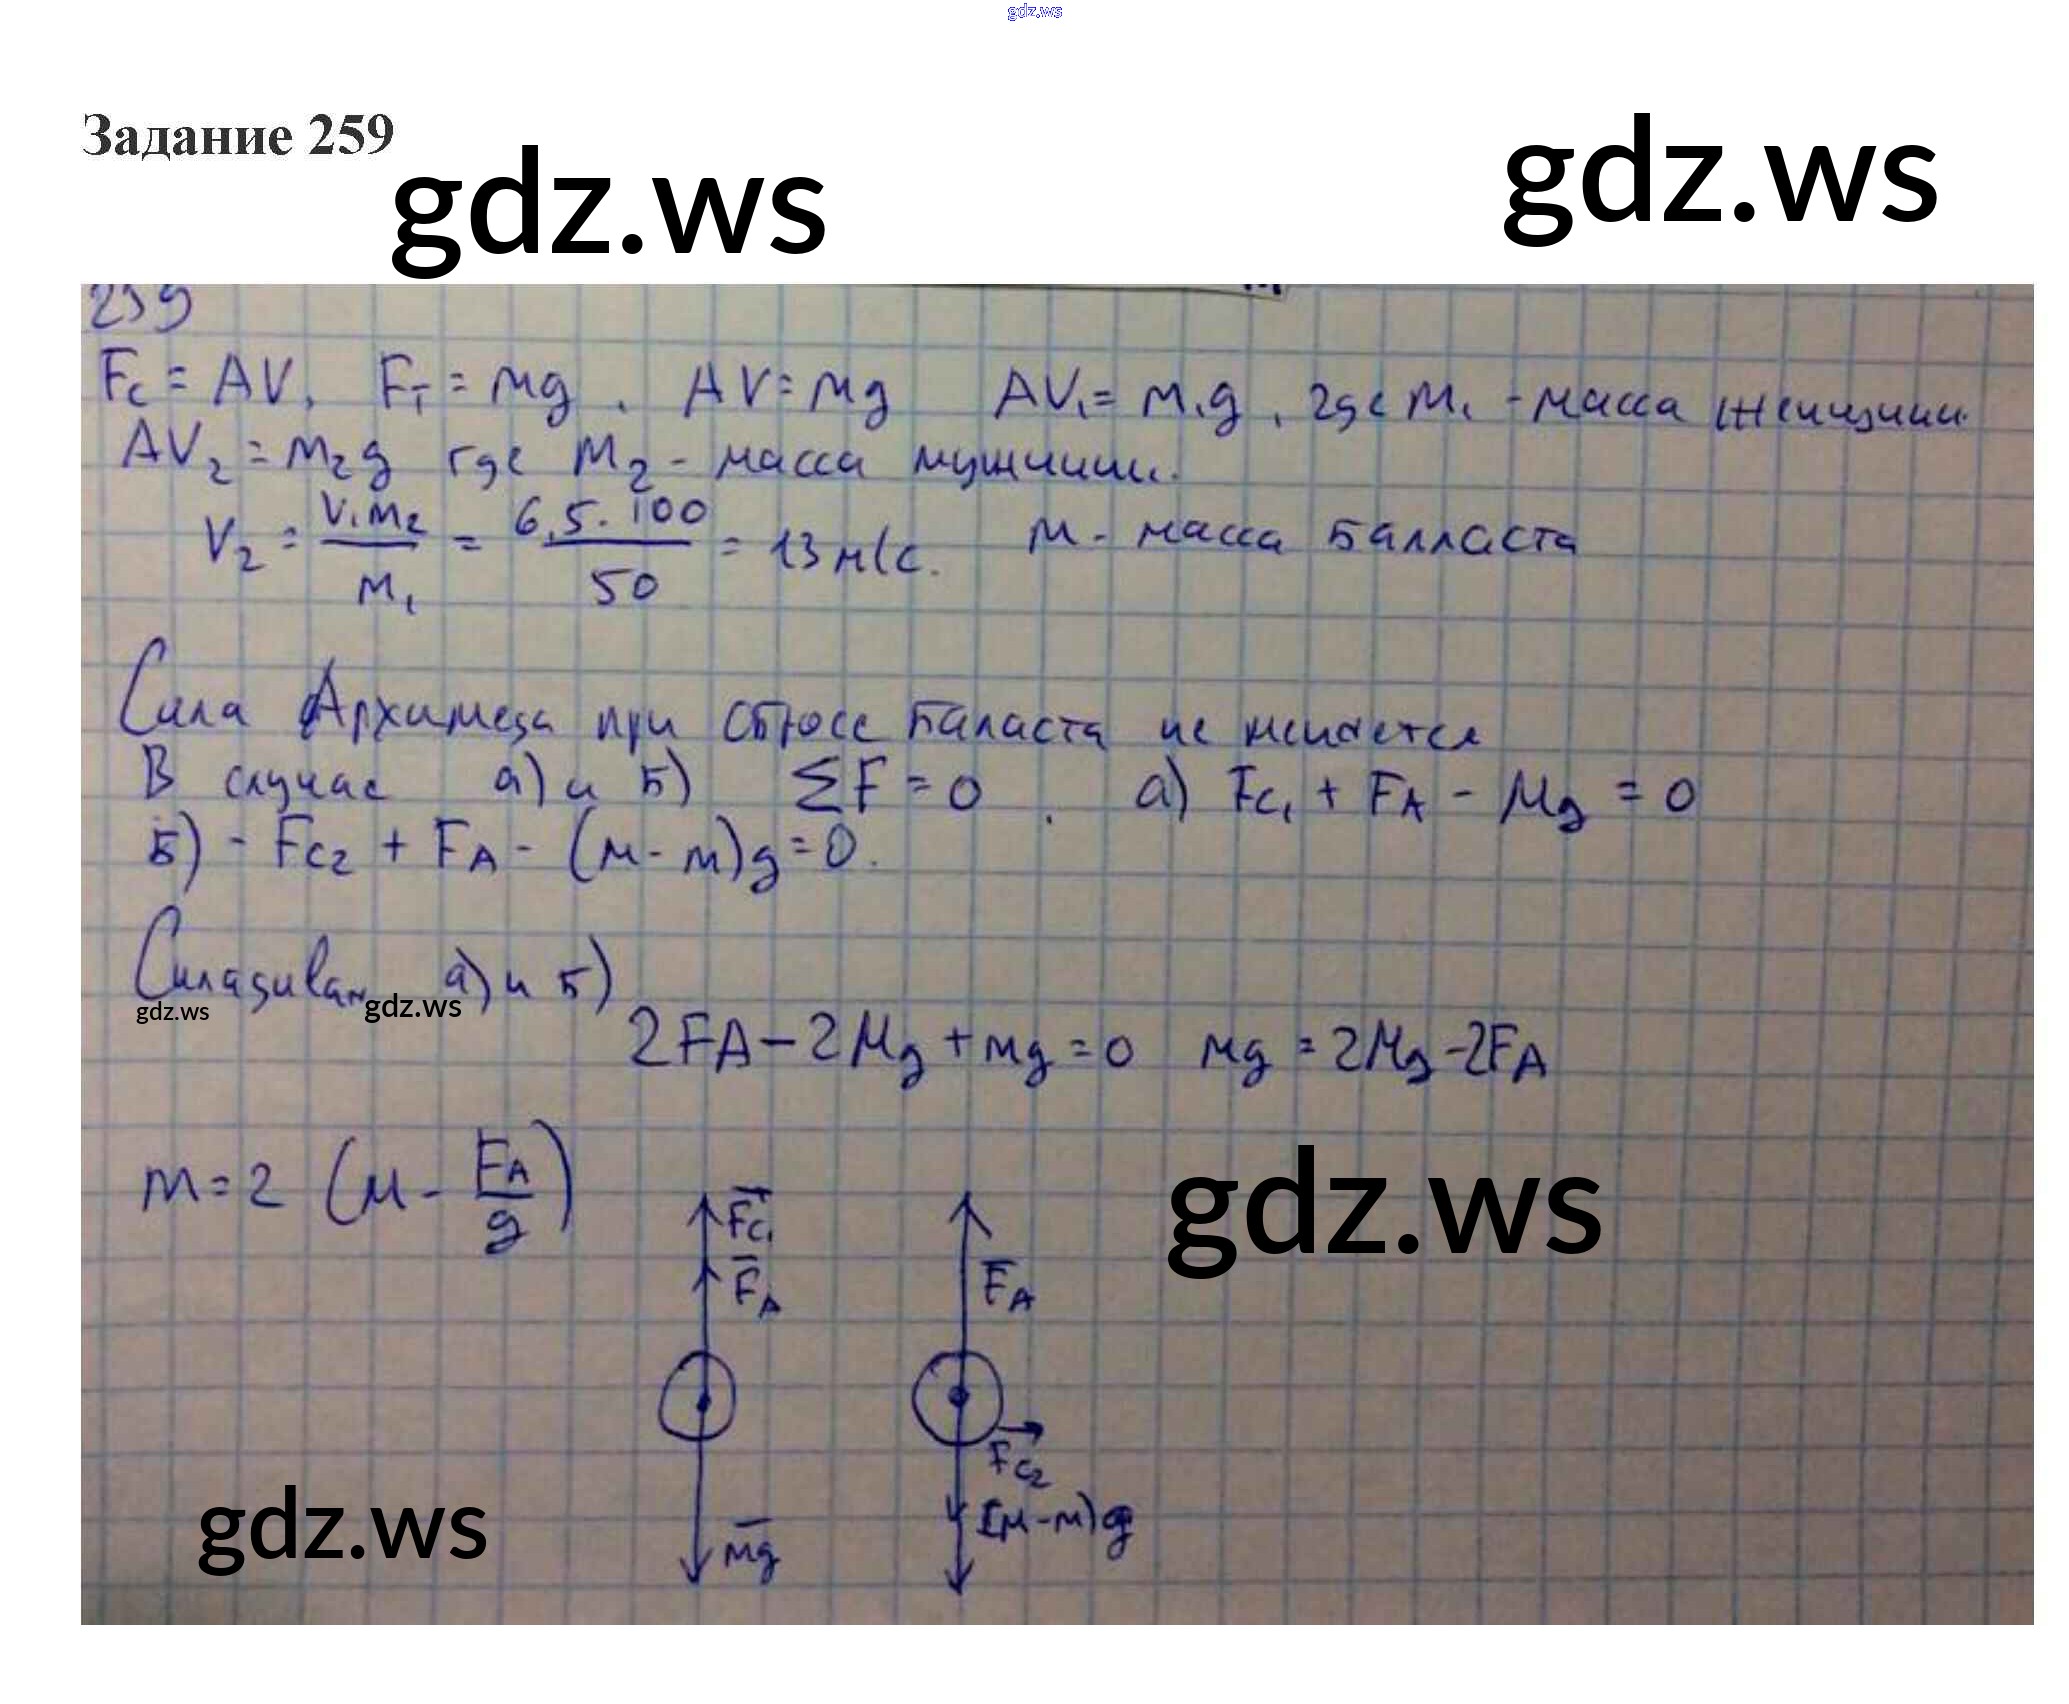 gdz.ws
Задание 259
gdz.ws gdz.ws
259
Fc = AV, Fт = mg. AV = mg AV₁ = m₁g, где m₁ - масса женщины.
AV₂ = m₂g где m₂ - масса мужчины.
V₂ = V₁m₂/m₁ = 6,5·100/50 = 13 м/с. m - масса балласта
Сила Архимеда при сбросе баласта не меняется
В случае а) и б) ΣF = 0. а) Fc₁ + FA - Mg = 0
б) - Fc₂ + FA - (M - m)g = 0.
Складывам а) и б)
gdz.ws gdz.ws
2FA - 2Mg + mg = 0 mg = 2Mg - 2FA
m = 2 (M - FA/g)
gdz.ws
Fc₁
FA FA
Fc₂
gdz.ws
(M-m)g
mg